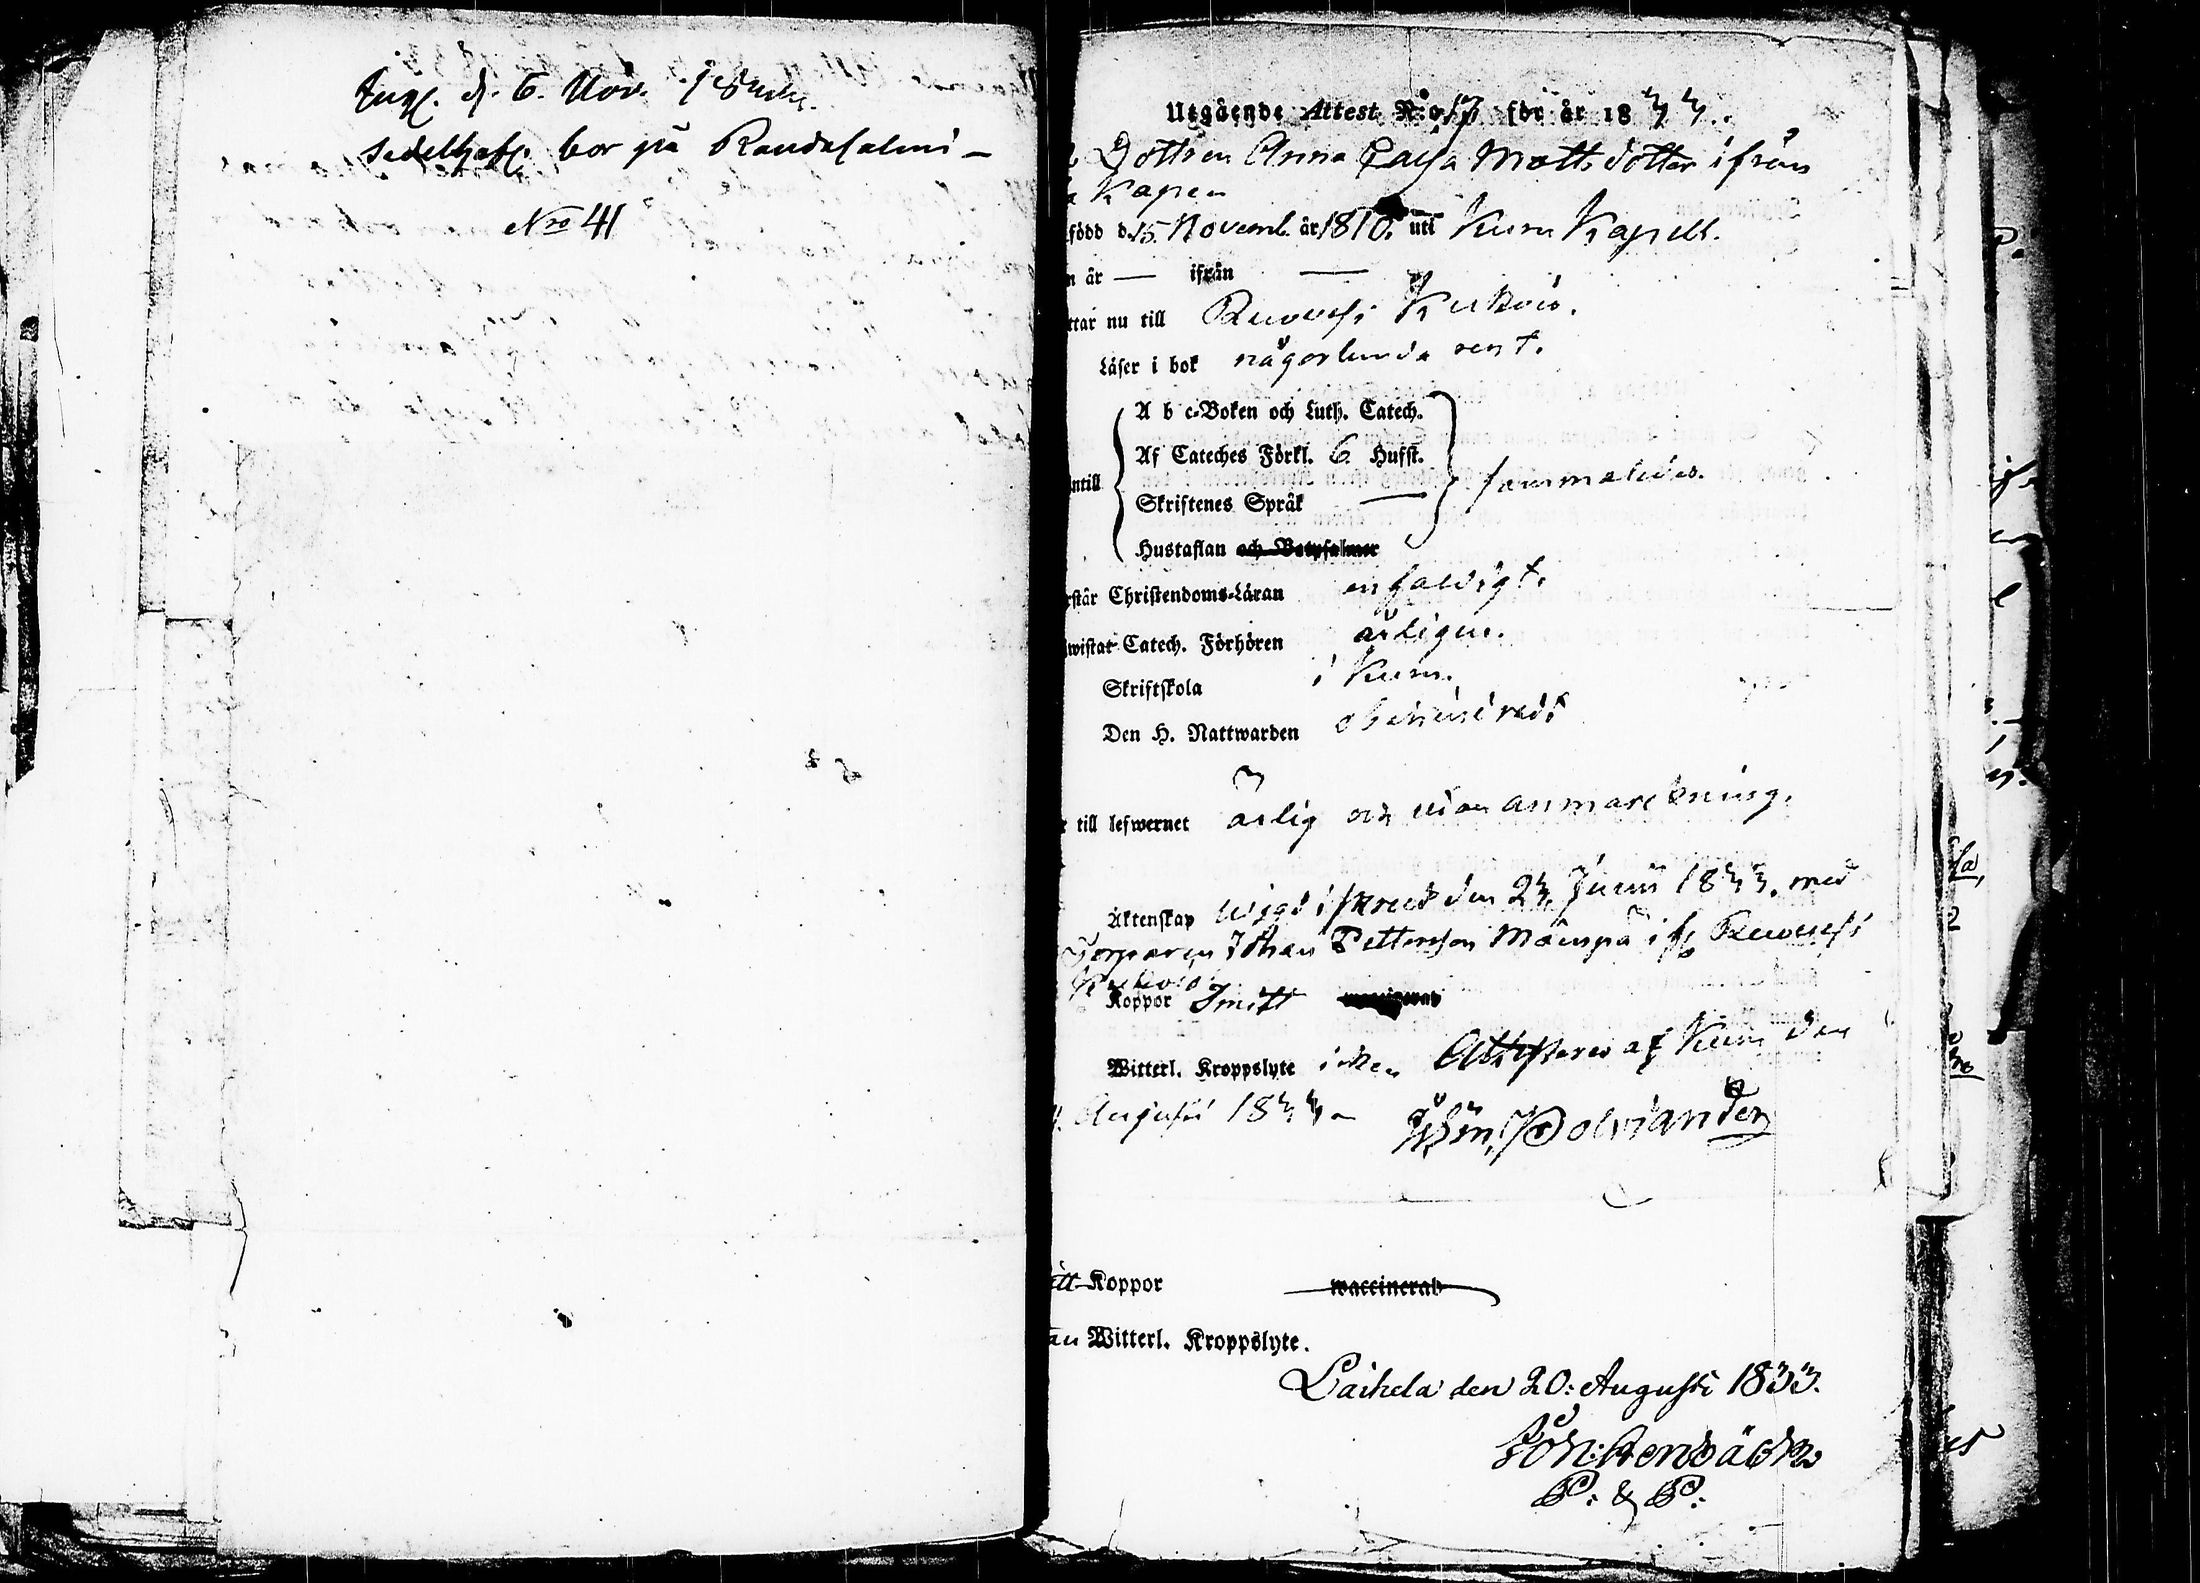 d. 6. Nov.
sedelhafv. bor på Randasalmi –
Nro 41
Utgående Attest N:o 17 för år 1833.
Dottren Anna Caisa Mattsdotter ifrån
Kapen
född d. 15. Novemb. år 1810. uti Kuru Kapell.
n år — ifrån —
ttar nu till Ruovesi Kuckois.
Läser i bok någorlunda rent.
A b c-Boken och Luth. Catech.
Af Cateches Förkl. 6 Hufst.
ntill
Skriftenes Språk — sammaledes.
Hustaflan och Botpsalmer
rstår Christendoms-Läran enfaldigt.
wistat Catech. Förhören årligen.
Skriftskola i Kuru.
Den H. Nattwarden obehindradt
till lefwernet ärlig och utan anmärckning.
Äktenskap wigd den 23 Junii 1833. med
Torparen Johan Pettersson Mäenpä if. Ruovesi
Koppor Imitt waccinerad
Witterl. Kroppslyte icke. Attesteras af Kuru den
Augusti 1833 – Polviander
ått Koppor waccinerad
an Witterl. Kroppslyte.
Laihela den 20: Augusti 1833.
P: & P: